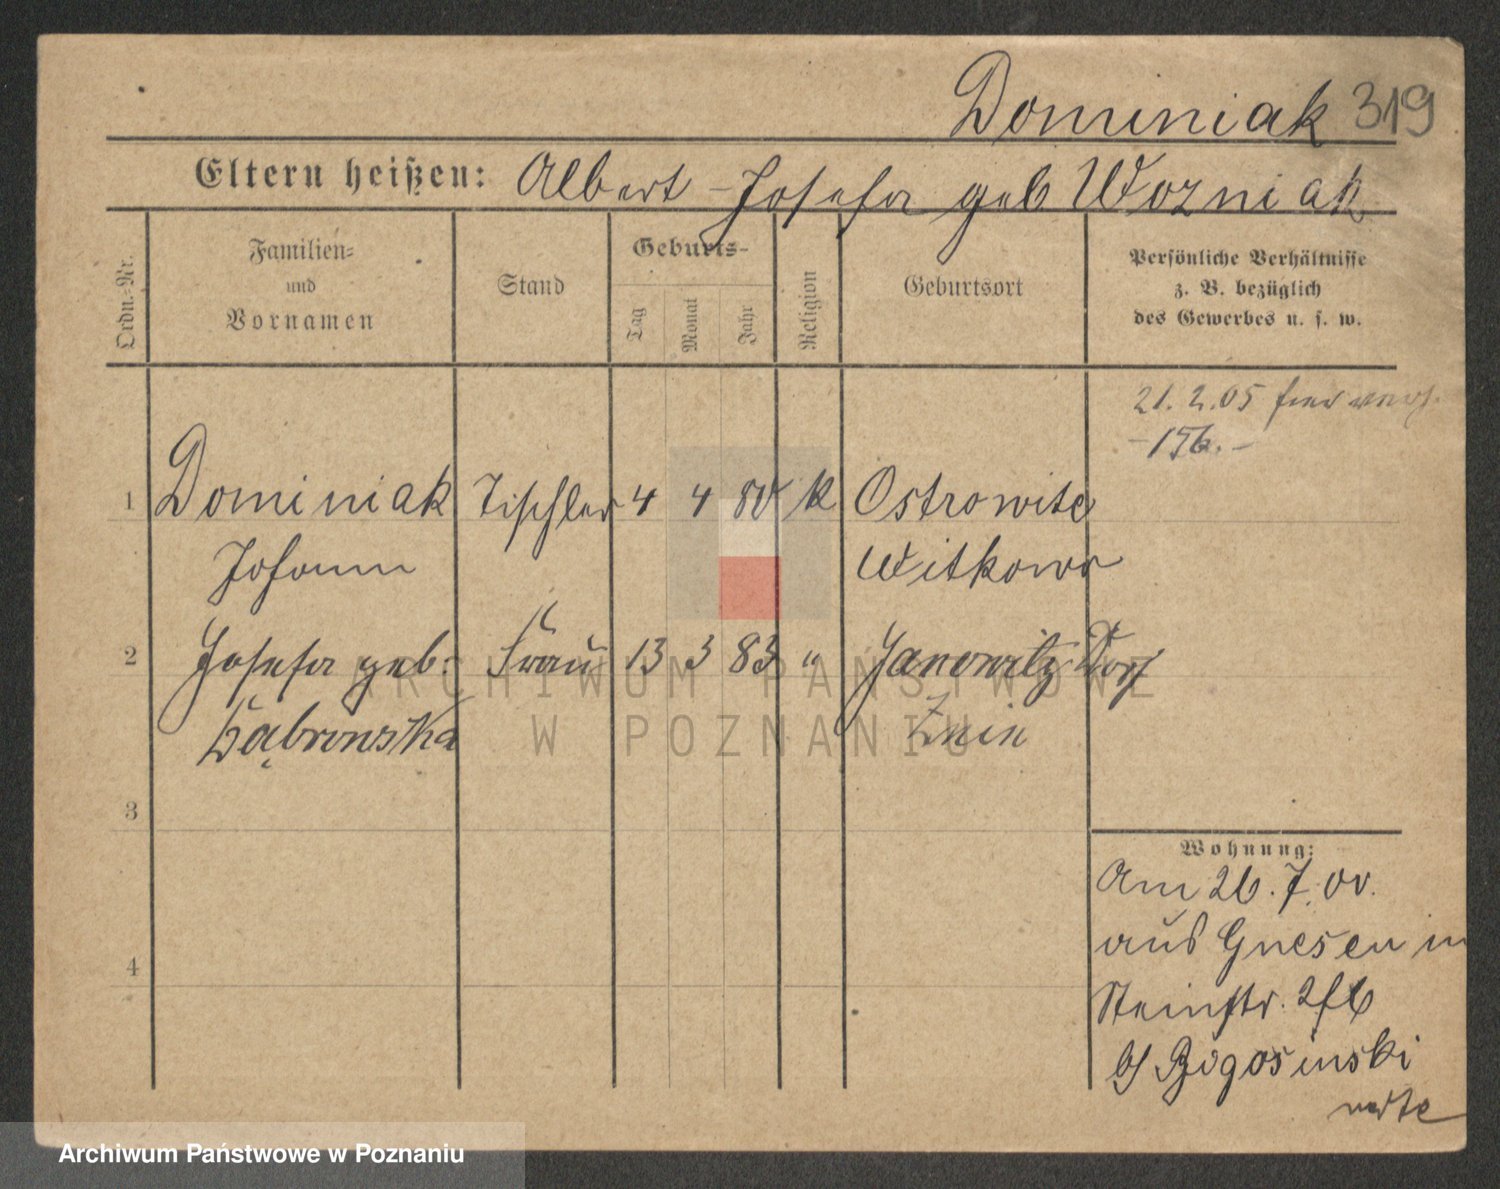 Dominiak 319
Eltern heißen: Albert - Josefa geb Wozniak
Ordn.-Nr.
Familien-
und
Vornamen
Stand
Geburts-
Tag
Monat
Jahr
Religion
Geburtsort
Persönliche Verhältnisse
z. B. bezüglich
des Gewerbes u. s. w.
21. 2. 05
1 Dominiak Tischler 4 4 80 k Ostrowite
Johann Witkowo
2 Josefa geb: Frau 13 3 83 " Janowitz Dorf
Dąbrowska Znin
3
4
Wohnung:
Am 26. 7. 00.
aus Gnesen in
Steinstr.
b/ Bogosinski
ARCHIWUM PAŃSTWOWE
W POZNANIU
Archiwum Państwowe w Poznaniu